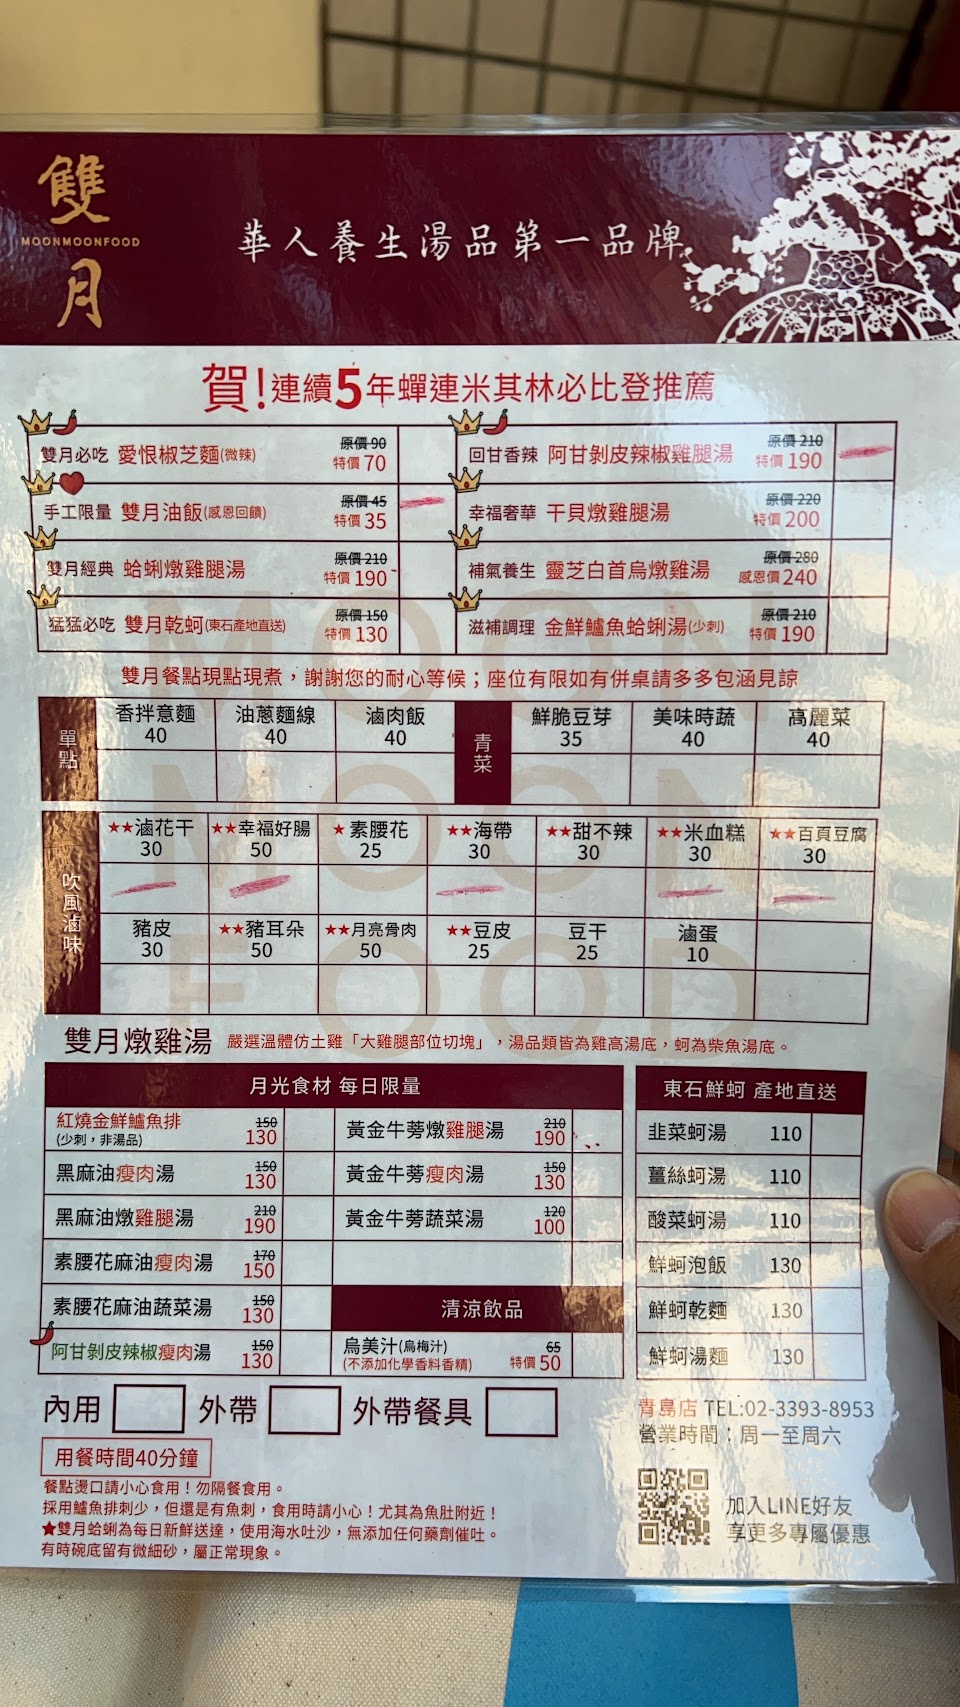 雙月
MOONMOONFOOD
華人養生湯品第一品牌
賀!連續5年蟬連米其林必比登推薦
雙月必吃 愛恨椒芝麵(微辣) 原價90 特價70
回甘香辣 阿甘剝皮辣椒雞腿湯 原價210 特價190
手工限量 雙月油飯(感恩回饋) 原價45 特價35
幸福奢華 干貝燉雞腿湯 原價220 特價200
雙月經典 蛤蜊燉雞腿湯 原價210 特價190
補氣養生 靈芝白首烏燉雞湯 原價280 感恩價240
猛猛必吃 雙月乾蚵(東石產地直送) 原價150 特價130
滋補調理 金鮮鱸魚蛤蜊湯(少刺) 原價210 特價190
雙月餐點現點現煮，謝謝您的耐心等候；座位有限如有併桌請多多包涵見諒
單點
香拌意麵 油蔥麵線 滷肉飯
40 40 40
青菜
鮮脆豆芽 美味時蔬 高麗菜
35 40 40
吹風滷味
★★滷花干 ★★幸福好腸 ★素腰花 ★★海帶 ★★甜不辣 ★★米血糕 ★★百頁豆腐
30 50 25 30 30 30 30
豬皮 ★★豬耳朵 ★★月亮骨肉 ★★豆皮 豆干 滷蛋
30 50 50 25 25 10
MOON
MOON
FOOD
雙月燉雞湯 嚴選溫體仿土雞「大雞腿部位切塊」，湯品類皆為雞高湯底，蚵為柴魚湯底。
月光食材 每日限量
紅燒金鮮鱸魚排 150
(少刺，非湯品) 130
黑麻油瘦肉湯 150 130
黑麻油燉雞腿湯 210 190
素腰花麻油瘦肉湯 170 150
素腰花麻油蔬菜湯 150 130
阿甘剝皮辣椒瘦肉湯 150 130
黃金牛蒡燉雞腿湯 210 190
黃金牛蒡瘦肉湯 150 130
黃金牛蒡蔬菜湯 120 100
清涼飲品
烏美汁(烏梅汁) 65
(不添加化學香料香精) 特價50
東石鮮蚵 產地直送
韭菜蚵湯 110
薑絲蚵湯 110
酸菜蚵湯 110
鮮蚵泡飯 130
鮮蚵乾麵 130
鮮蚵湯麵 130
內用 外帶 外帶餐具
用餐時間40分鐘
餐點燙口請小心食用！勿隔餐食用。
採用鱸魚排刺少，但還是有魚刺，食用時請小心！尤其為魚肚附近！
★雙月蛤蜊為每日新鮮送達，使用海水吐沙，無添加任何藥劑催吐。
有時碗底留有微細砂，屬正常現象。
青島店 TEL:02-3393-8953
營業時間：周一至周六
加入LINE好友
享更多專屬優惠